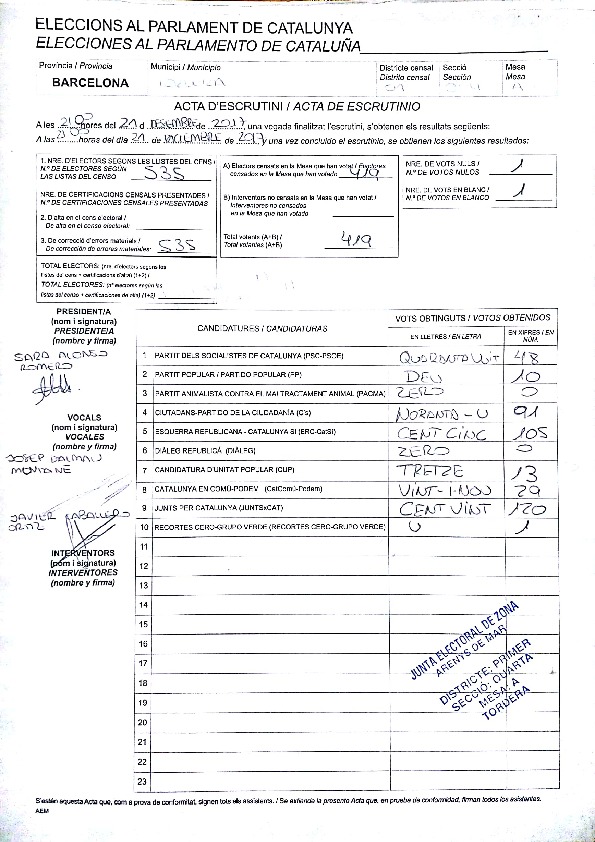 ELECCIONS AL PARLAMENT DE CATALUNYA
ELECCIONES AL PARLAMENTO DE CATALUÑA
Província / Provincia
BARCELONA
Municipi / Municipio
Districte censal
Distrito censal
Secció
Sección
Mesa
Mesa
A
ACTA D'ESCRUTINI / ACTA DE ESCRUTINIO
A les 21:00 hores del 21 d DESEMBRE de 2017 una vegada finalitzat l'escrutini, s'obtenen els resultats següents:
A las horas del día 21 de DICIEMBRE de 2017 y una vez concluido el escrutinio, se obtienen los siguientes resultados:
1. NRE. D'ELECTORS SEGONS LES LLISTES DEL CENS /
N.º DE ELECTORES SEGÚN
LAS LISTAS DEL CENSO 535
NRE. DE CERTIFICACIONS CENSALS PRESENTADES /
N.º DE CERTIFICACIONES CENSALES PRESENTADAS
2. D'alta en el cens electoral /
De alta en el censo electoral:
3. De correcció d'errors materials /
De corrección de errores materiales: 535
TOTAL ELECTORS: (nre. d'electors segons les
llistes del cens + certificacions d'alta) (1+2) /
TOTAL ELECTORES: (nº electores según las
listas del censo + certificaciones de alta) (1+2)
A) Electors censats en la Mesa que han votat / Electores
censados en la Mesa que han votado 419
B) Interventors no censats en la Mesa que han votat /
Interventores no censados
en la Mesa que han votado
Total votants (A+B) /
Total votantes (A+B) 419
NRE. DE VOTS NULS /
N.º DE VOTOS NULOS 1
NRE. DE VOTS EN BLANC /
N.º DE VOTOS EN BLANCO 1
PRESIDENT/A
(nom i signatura)
PRESIDENTE/A
(nombre y firma)
SARA ALONSO
ROMERO
VOCALS
(nom i signatura)
VOCALES
(nombre y firma)
JOSEP DALMAU
JAVIER CABALLERO
INTERVENTORS
(nom i signatura)
INTERVENTORES
(nombre y firma)
CANDIDATURES / CANDIDATURAS
VOTS OBTINGUTS / VOTOS OBTENIDOS
EN LLETRES / EN LETRA
EN XIFRES / EN NÚM.
1 PARTIT DELS SOCIALISTES DE CATALUNYA (PSC-PSOE) QUARANTA VUIT 48
2 PARTIT POPULAR / PARTIDO POPULAR (PP) DEU 10
3 PARTIT ANIMALISTA CONTRA EL MALTRACTAMENT ANIMAL (PACMA) ZERO 0
4 CIUTADANS-PARTIDO DE LA CIUDADANÍA (C's) NORANTA-U 91
5 ESQUERRA REPUBLICANA - CATALUNYA SÍ (ERC-CatSí) CENT CINC 105
6 DIÀLEG REPUBLICÀ (DIÀLEG) ZERO 0
7 CANDIDATURA D'UNITAT POPULAR (CUP) TRETZE 13
8 CATALUNYA EN COMÚ-PODEM (CatComú-Podem) VINT-I-NOU 29
9 JUNTS PER CATALUNYA (JUNTSxCAT) CENT VINT 120
10 RECORTES CERO-GRUPO VERDE (RECORTES CERO-GRUPO VERDE) U 1
11
12
13
14
15
16
17
18
19
20
21
22
23
JUNTA ELECTORAL DE ZONA
ARENYS DE MAR
DISTRICTE: PRIMER
SECCIO: QUARTA
MESA: A
TORDERA
S'estén aquesta Acta que, com a prova de conformitat, signen tots els assistents. / Se extiende la presente Acta que, en prueba de conformidad, firman todos los asistentes.
AEM